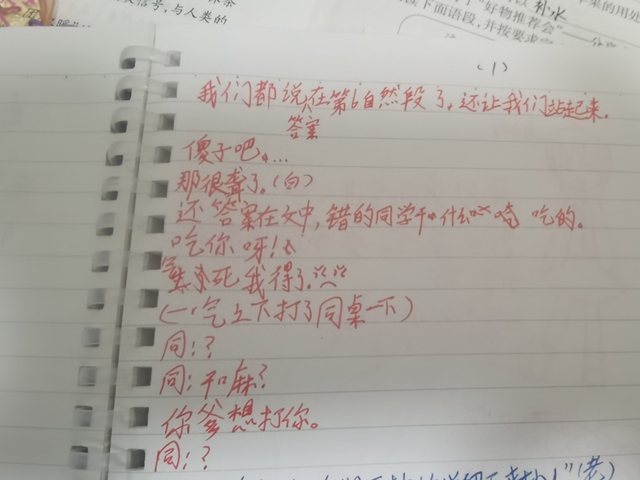 信号,与人类的
补水
下面语段,并按要求
"好物推荐会"
(1)
我们都说在第6自然段了,还让我们站起来。
答案
傻子吧、...
那很聋了。(白)
还答案在文中,错的同学干 什么 吃的。
吃你呀!
死我得了
(一气之下打了同桌一下)
同:?
同:干麻?
你爹想打你。
同:?